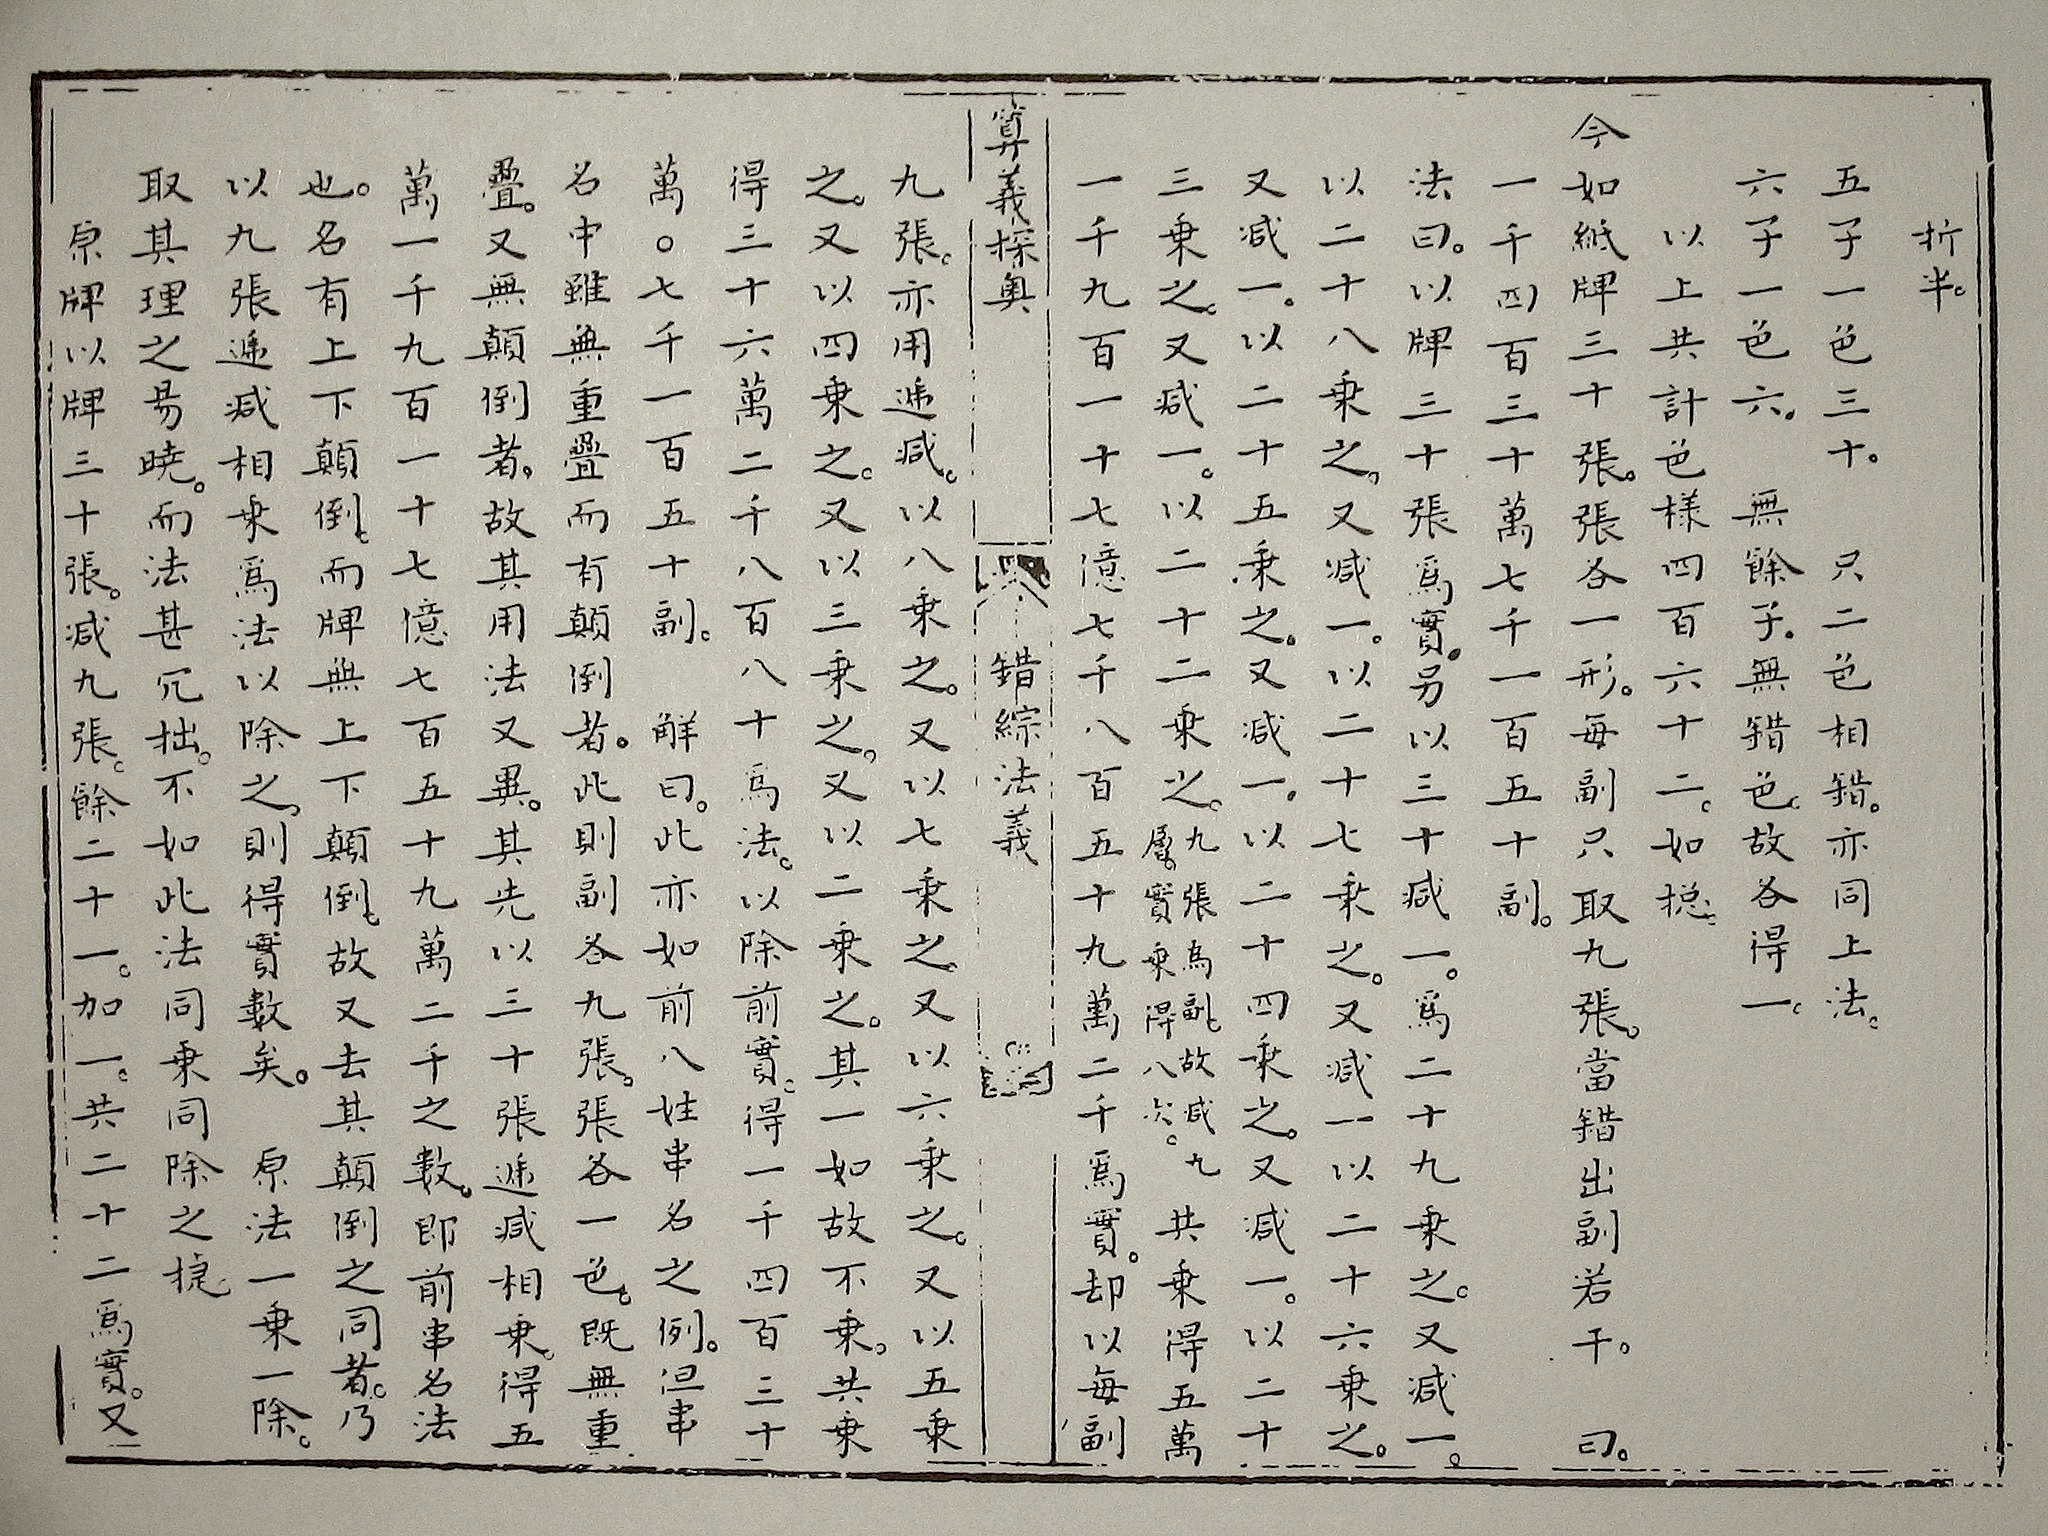 折半。
五子一色三十。　只二色相錯。亦同上法。
六子一色六。　無餘子。無錯色。故各得一。
以上共計色樣四百六十二。如總。
今如紙牌三十張。張各一形。每副只取九張。當錯出副若干。　曰。
一千四百三十萬七千一百五十副。
法曰。以牌三十張爲實。另以三十减一。爲二十九乗之。又减一。
以二十八乗之。又减一。以二十七乗之。又减一以二十六乗之。
又减一。以二十五乗之。又减一。以二十四乗之。又减一。以二十
三乗之。又减一。以二十二乗之。九張為副。故减九層。實乗得八次。共乗得五萬
一千九百一十七億七千八百五十九萬二千爲實。却以每副
算義探奥　錯綜法義
九張。亦用遞减。以八乗之。又以七乗之。又以六乗之。又以五乗
之。又以四乗之。又以三乗之。又以二乗之。其一如故不乗。共乗
得三十六萬二千八百八十爲法。以除前實。得一千四百三十
萬〇七千一百五十副。　解曰。此亦如前八姓串名之例。但串
名中雖無重疊而有顛倒者。此則副各九張。張各一色。既無重
疊。又無顛倒者。故其用法又異。其先以三十張遞减相乗。得五
萬一千九百一十七億七百五十九萬二千之數。即前串名法
也。名有上下顛倒。而牌無上下顛倒。故又去其顛倒之同者。乃
以九張遞减相乗爲法以除之。則得實數矣。　原法一乗一除。
取其理之易曉。而法甚冗拙。不如此法同乗同除之捷
原牌以牌三十張。减九張。餘二十一。加一。共二十二爲實。又